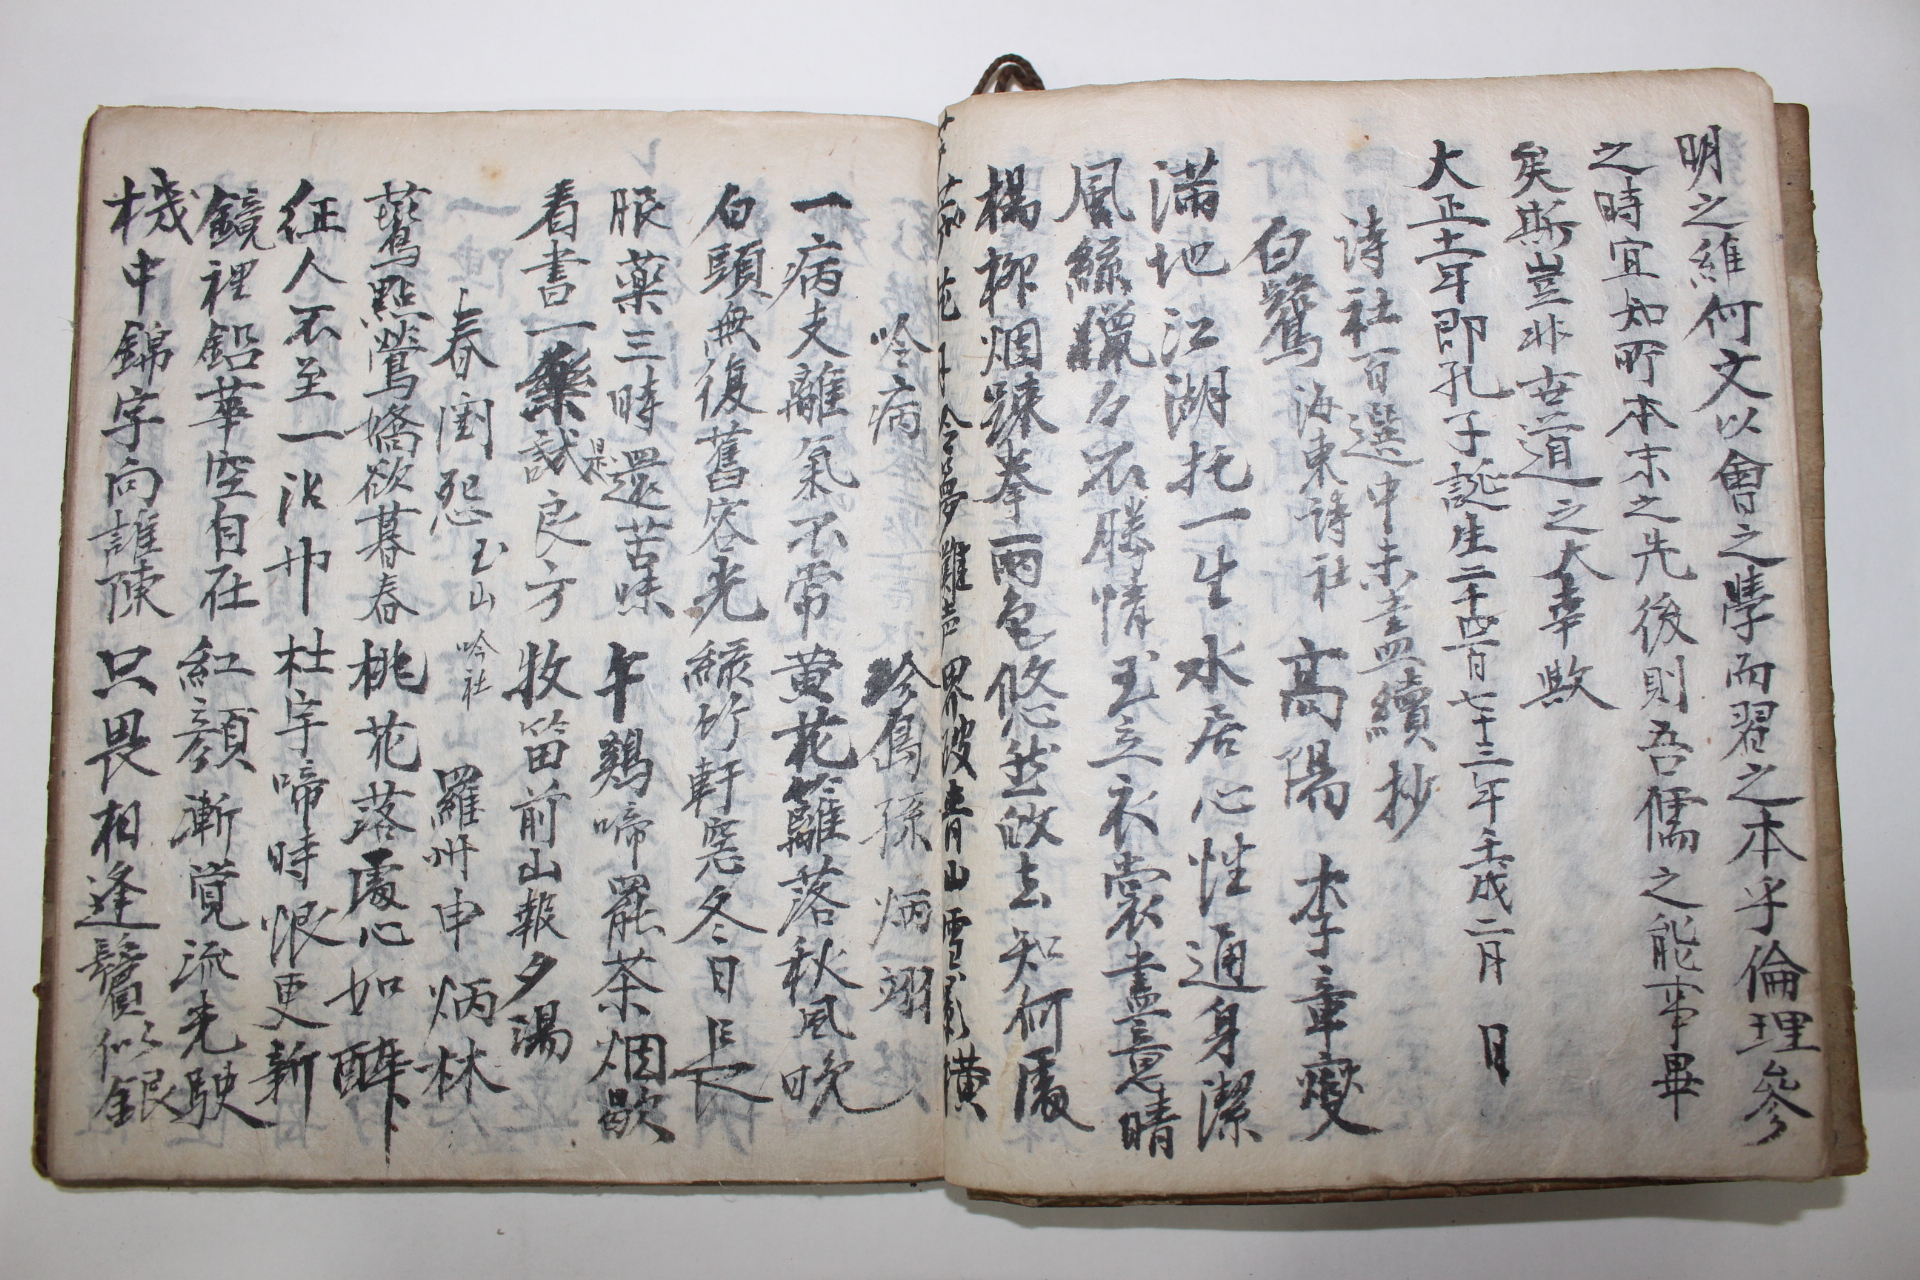 明之維何文以會之學而習之本乎倫理參
之時宜知所本末之先後則吾儒之能事畢
矣斯豈非世道之大幸歟
大正十一年即孔子誕生二千四百七十三年壬戌二月 日
詩社百選中未盡續抄
白鷺 海東詩社 高陽 李章燮
滿地江湖托一生 水居心性通身潔
風絲獵々不勝情 玉立衣裳盡意晴
楊柳烟踈拳雨色 悠然故去知何處
花月令夢難 界破青山雪影橫
吟病 珍島 孫炳翊
一病支離氣不常 黃花籬落秋風晩
白頭無復舊容光 綠竹軒窓冬日長
服藥三時還是苦味 午鷄啼罷茶烟歇
看書一藥試良方 牧笛前山報夕湯
春閨怨 玉山吟社 羅州 申炳林
鷰點鶯嬌欲暮春 桃花落處心如醉
征人不至一沾巾 杜宇啼時恨更新
鏡裡鉛華空自在 紅顔漸覚流光駛
機中錦字向誰陳 只畏相逢鬢似銀